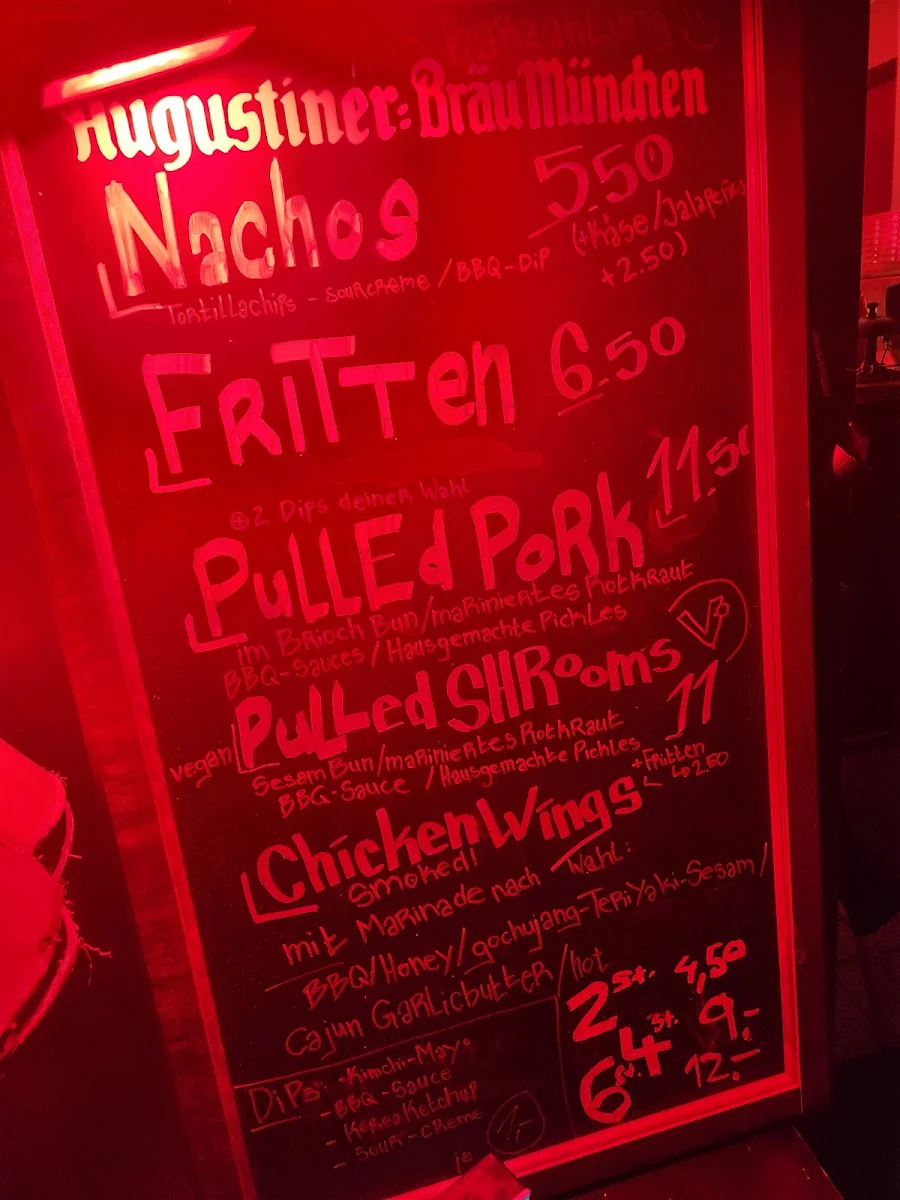 Nur Barzahlung
Augustiner-Bräu München
Nachos 5.50
Tortillachips - sourcreme / BBQ-Dip (+Käse/Jalapeños
+2.50)
Fritten 6.50
⊕2 Dips deiner Wahl
Pulled Pork 11.50
im Brioch Bun/mariniertes Rotkraut
BBQ-Sauces / Hausgemachte Pickles
vegan Pulled SHRooms V 11
Sesam Bun/mariniertes Rotkraut
BBQ-Sauce / Hausgemachte Pickles
+Fritten
↳2.50
Chicken Wings
Smoked!
mit Marinade nach Wahl:
BBQ/Honey/gochujang-Teriyaki-Sesam/
Cajun Garlicbutter/Hot
2 St. 4,50
4 St. 9.-
6 St. 12.-
Dips: -Kimchi-Mayo
-BBQ-Sauce
- Korea Ketchup
- Sour-Creme
je 1,-